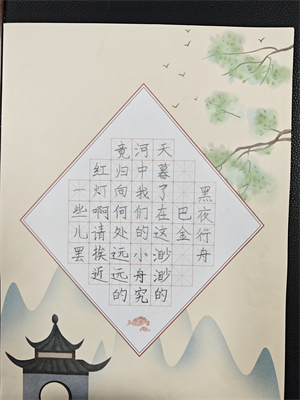 黑夜行舟
巴金
天暮了在这渺渺的
河中我们的小舟究
竟归向何处远远的
红灯啊请挨近
一些儿罢